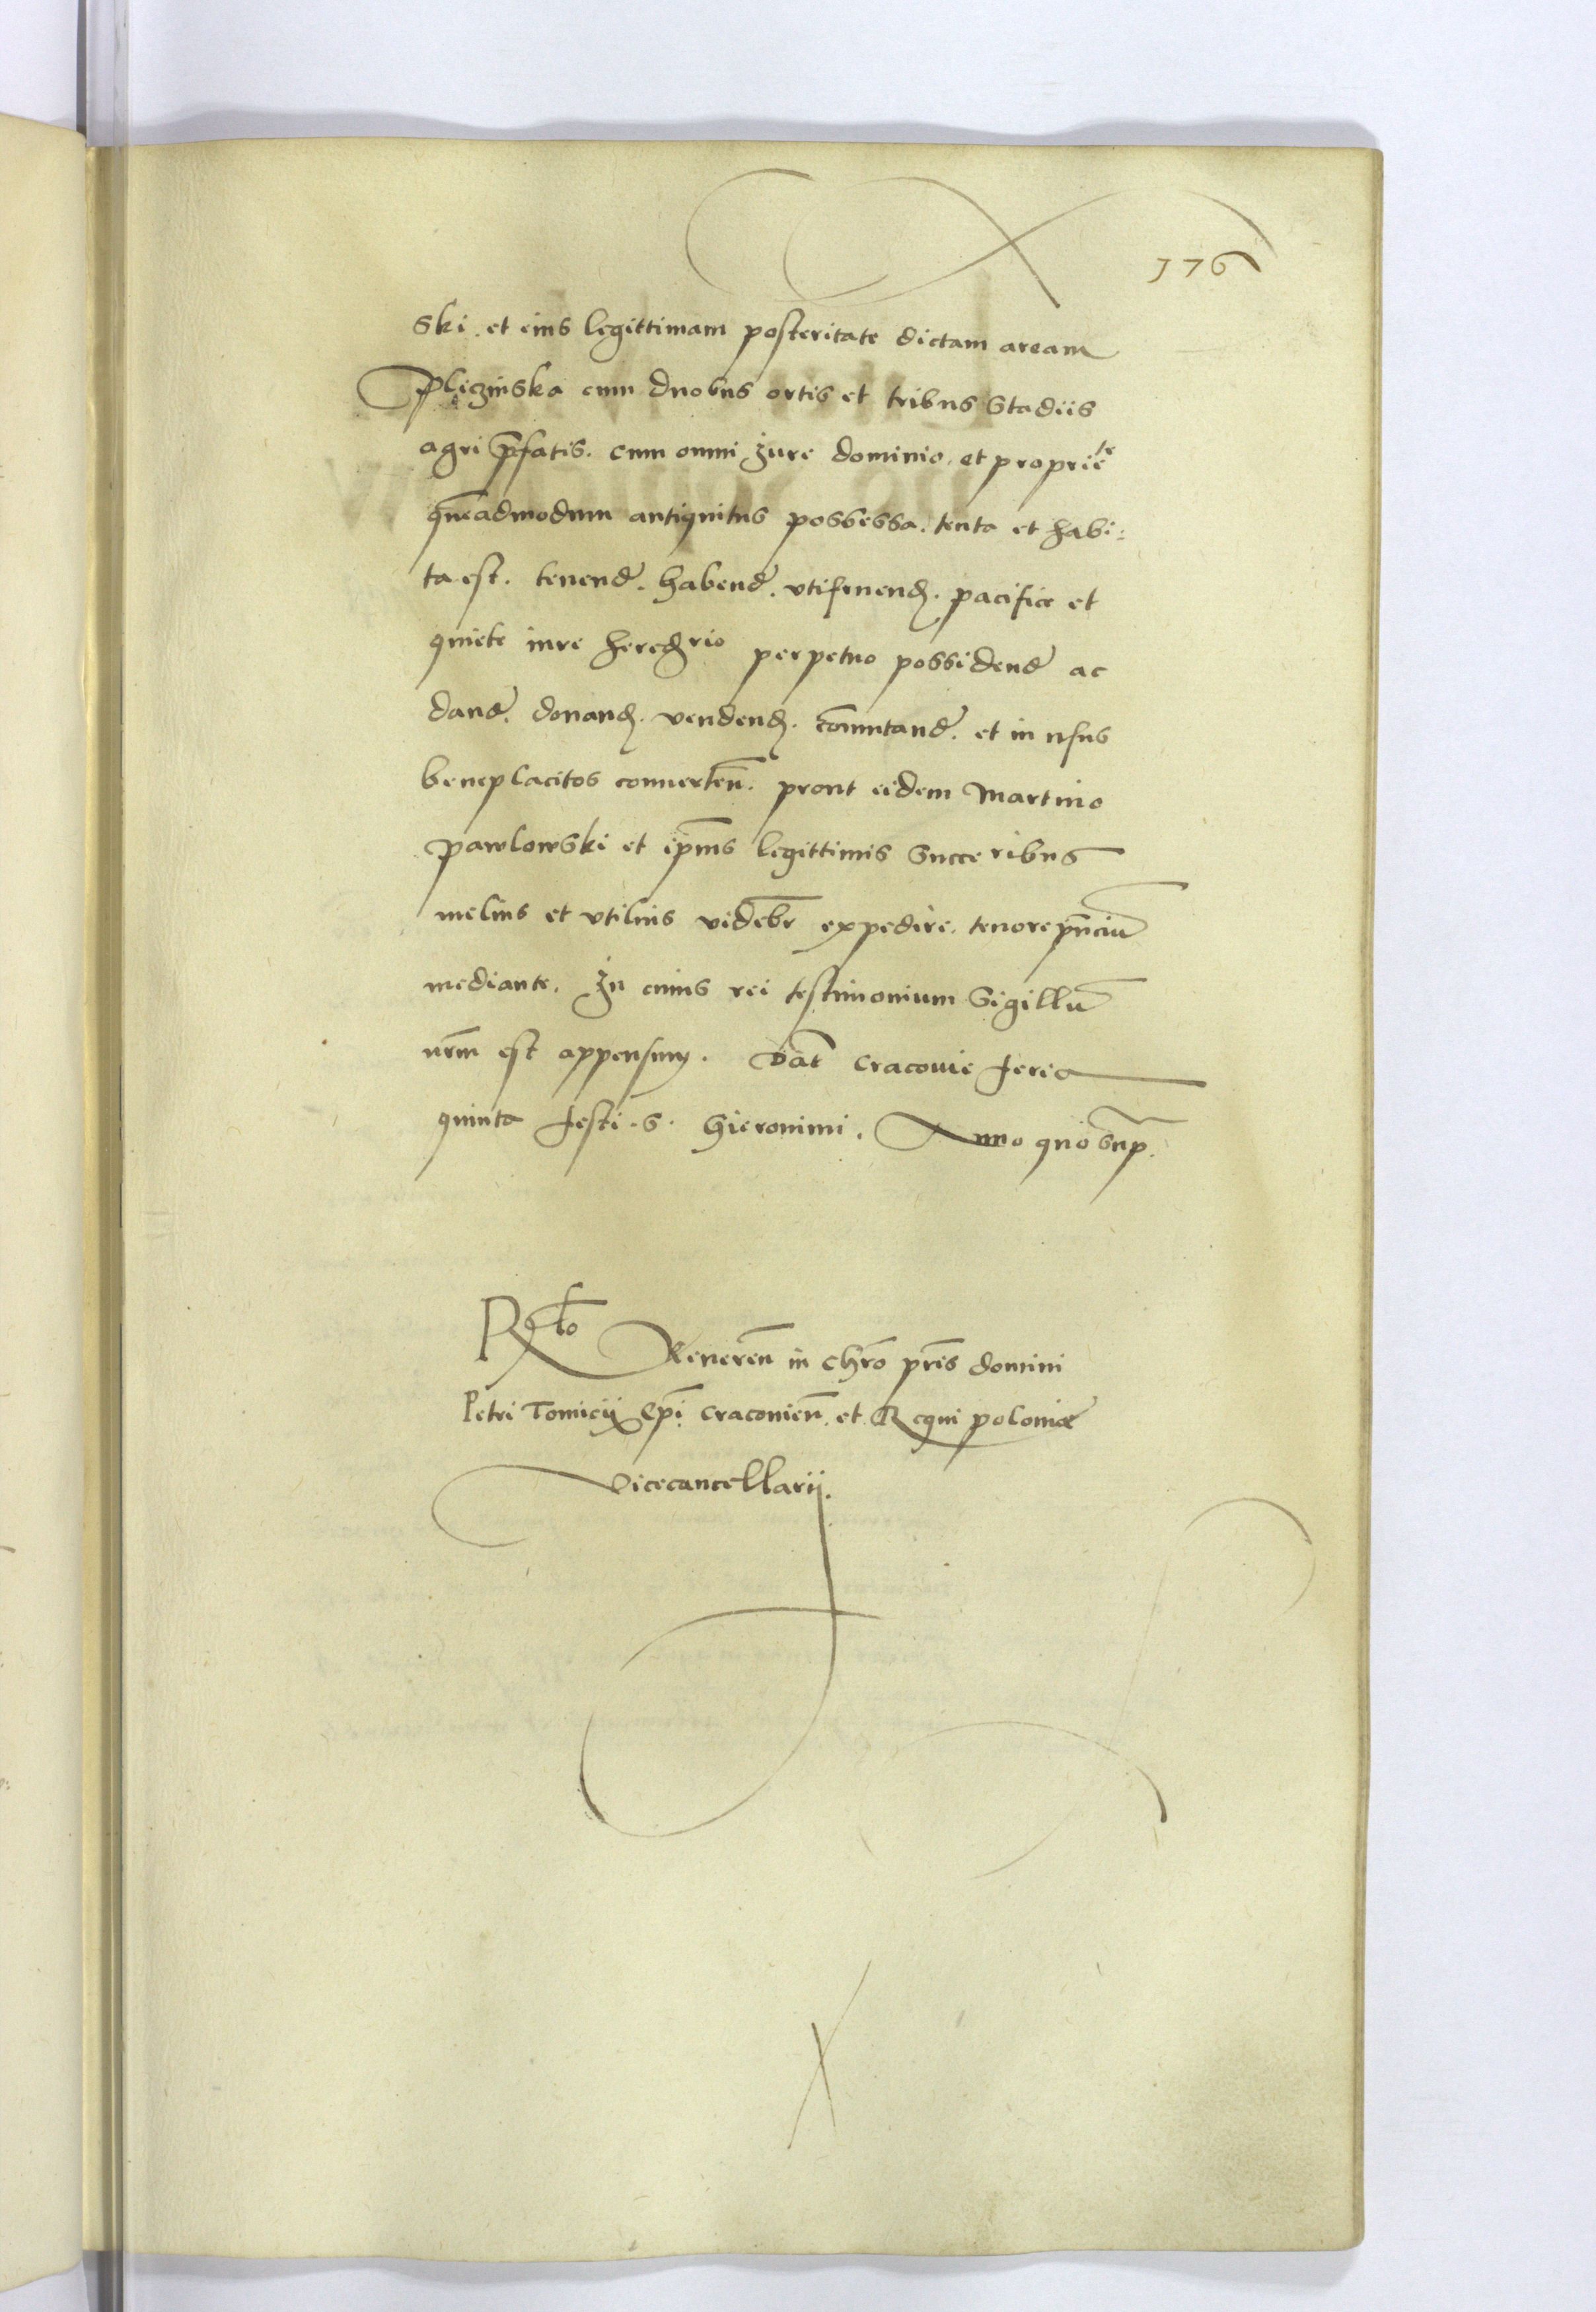 176
ski. et eius legittimam posteritate dictam aream
Pliczinska cum duobus ortis et tribus stadiis
agri p̄fatis. cum omni Jure dominio. et proprie͞te
quēadmodum antiquitus possessa. tenta et habi:
ta est. tenend. habend. vtifruend. pacifice et
quiete iure heredrio perpetuo possidend ac
dand. donand. vendend. com̄utand. et in usus
beneplacitos conuerten̄. prout eidem Martino
pawlowski et ip̄ius legittimis succeribus
melius et vtilius videbr̄ expedire. tenore pn̄ciū
mediante. In cuius rei testimonium Sigillū
nr̄m est appensum. Dat̄ Cracouie feria
quinta festi. S. Hieronimi. Anno quo sup̄.
R͞lo Reueren̄ in Chr̄o pr̄is domini
Petri Tomicij Ep̄i Cracouien̄. et Regni poloniæ
Vicecancellarij.